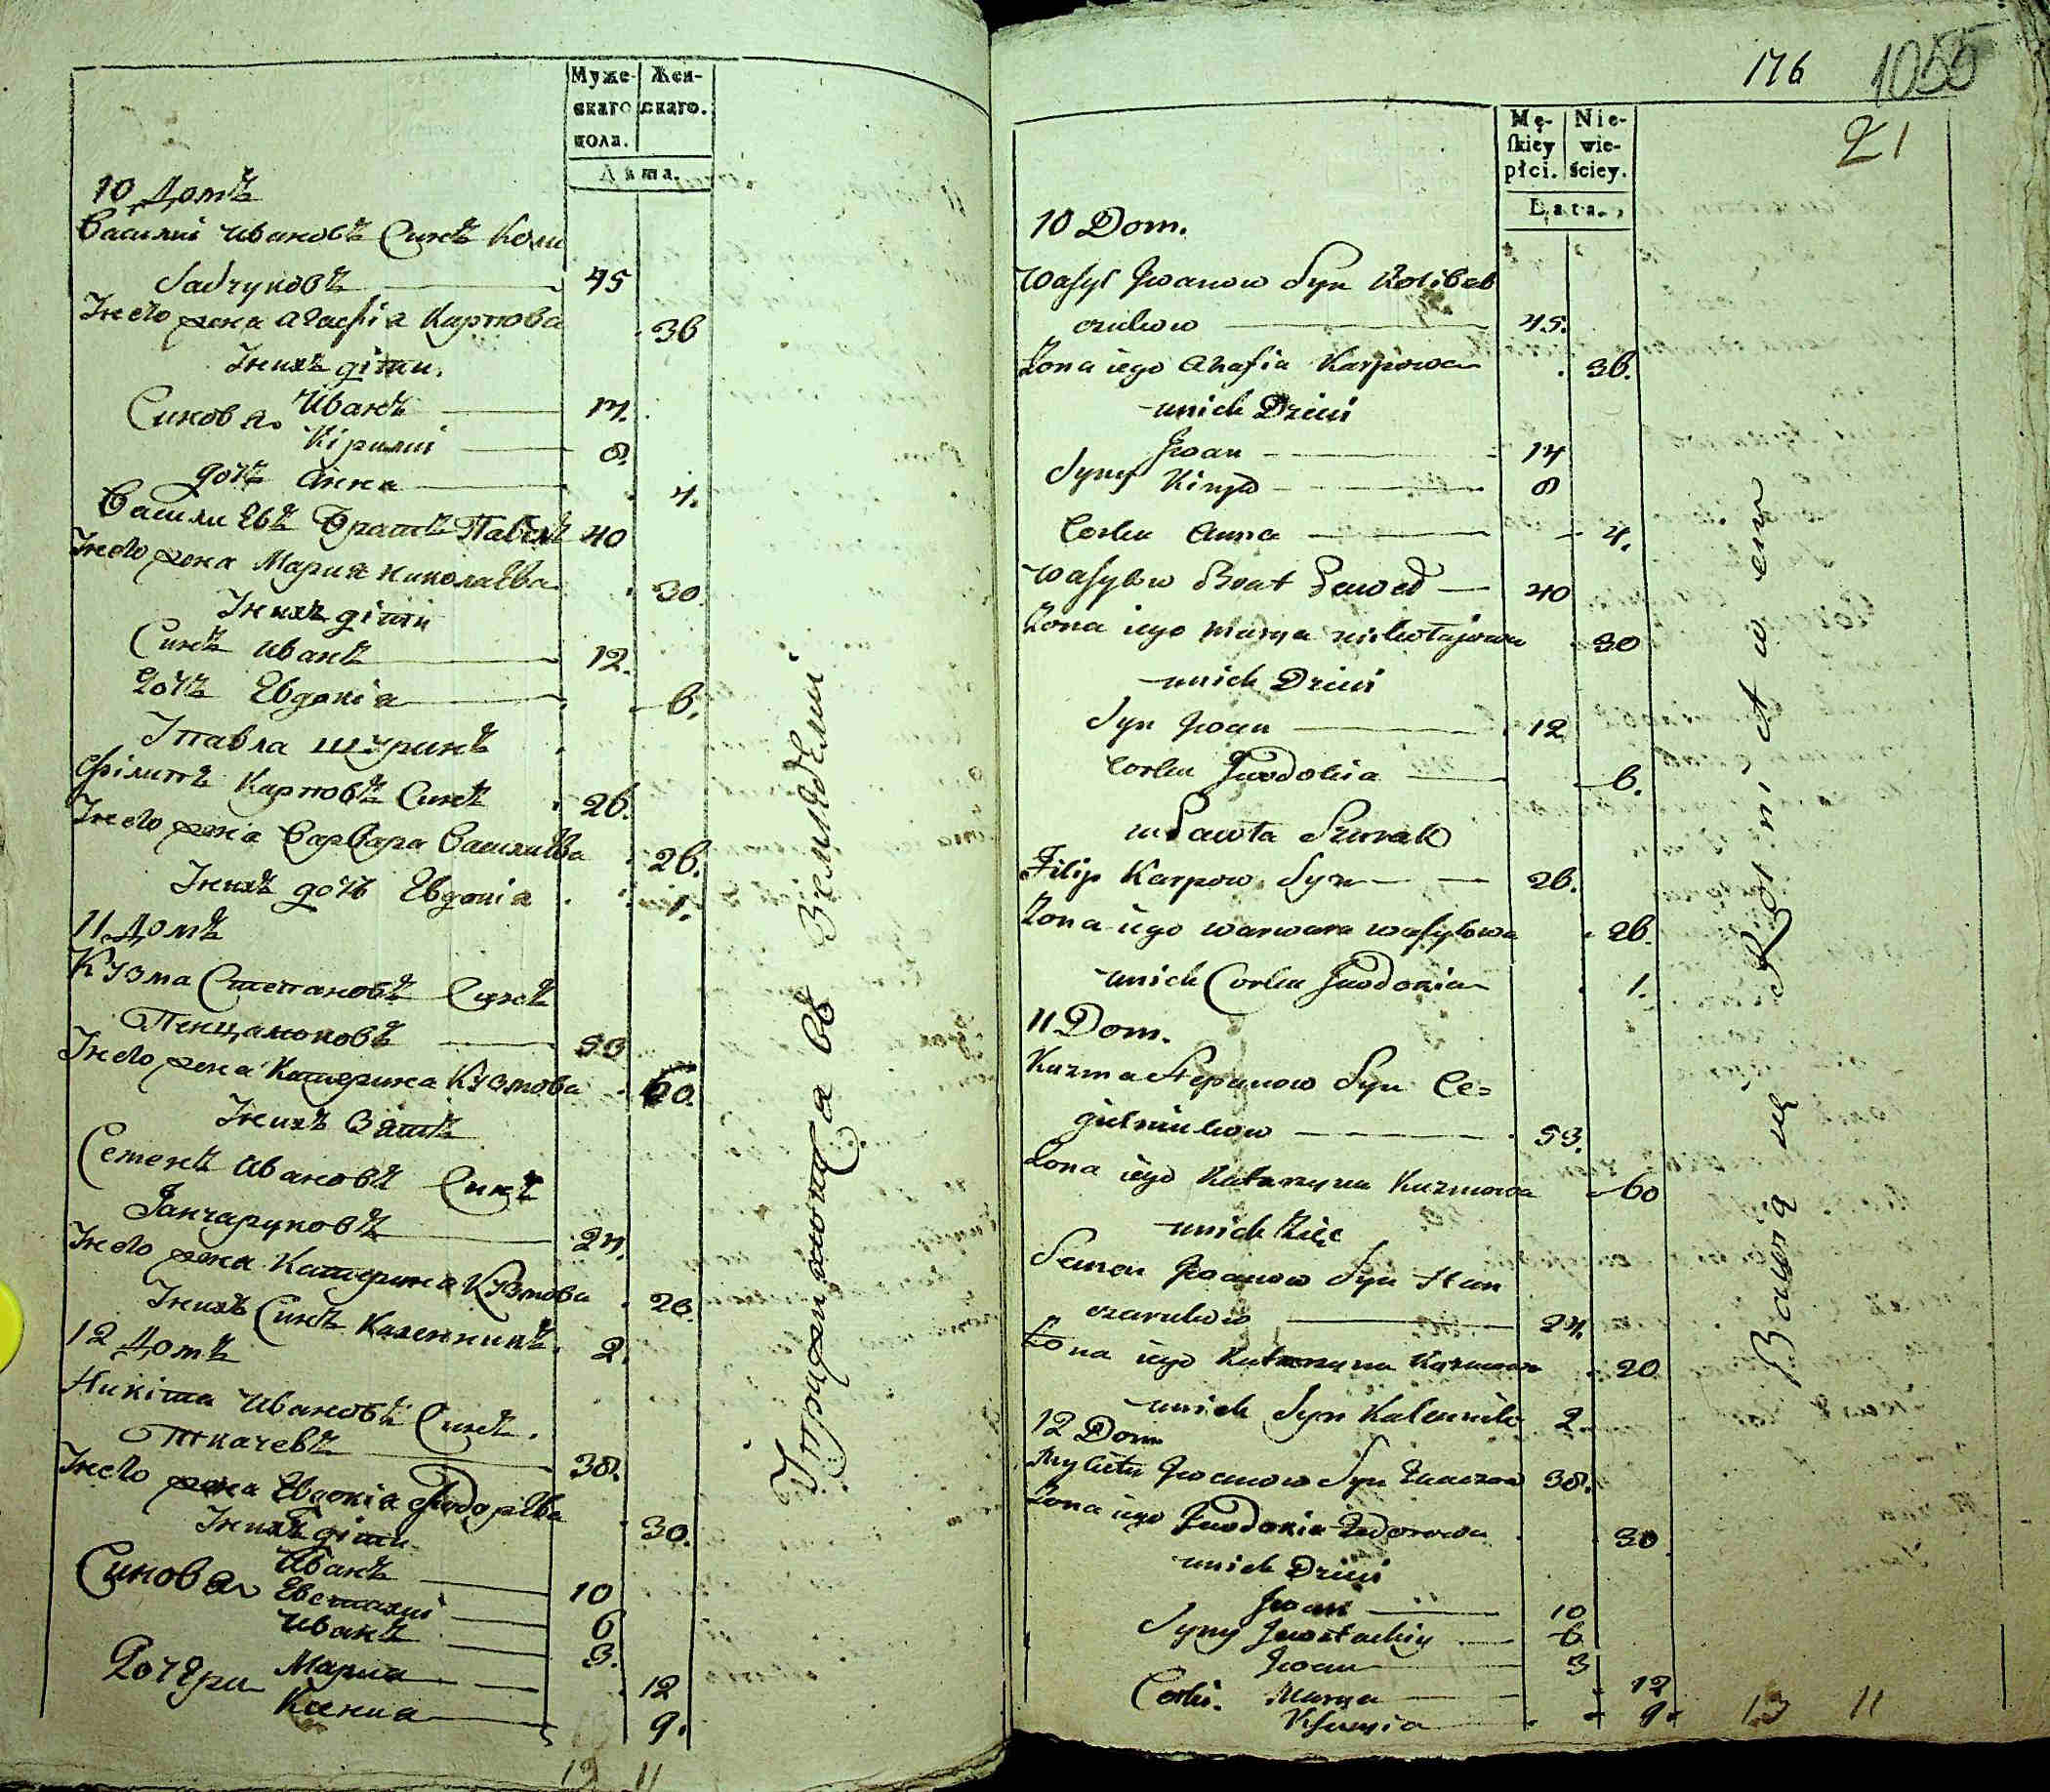 Муже-
скаго
пола.
Жен-
скаго.
Лѣта.
10 Домъ
Василий Ивановъ Синъ Коли
бабчуковъ 45
Унего жена Агафiя Карпова 36
Унихъ дiти.
Синовя Иванъ 14.
Кiрилиi 8.
дочь Анна 4.
Василиевъ Братъ Павелъ 40
Унего жена Мария Николаева 30
Унихъ дiти
Синъ Иванъ 12.
Дочь Евдокiя 6.
У Павла шуринъ
Филипъ Карповъ Синъ 26.
Унего жена Варвара Василиева 26.
Унихъ дочь Евдокiя 1.
11 Домъ
Кузма Степановъ Синъ
53
Унего жена Катерина Кузмова 60.
Унихъ Зять
Семенъ Ивановъ Синъ
Ганчаруковъ 24.
Унего жена Катерина Кузмова 20.
Унихъ Синъ Каленникъ 2.
12 Домъ
Никiта Ивановъ Синъ.
Ткачевъ 38.
Унего жена Евдокiя Федорева 30.
Унихъ дiти
Синовя Иванъ 10
Евстахиi 6
Иванъ 3.
Дочери Мария 12
Ксения 9.
Упражняются въ Земледелии
176 1055
21
Mę-
skiey
płci.
Nie-
wie-
ściey.
Lata.
10 Dom.
Wasyl Iwanow Syn Kolibab
czukow 45.
Zona iego Ahafia Karpowa 36.
unich Dzieci
Iwan 14
Syny Kirył 8
Corka Anna 4.
Wasylow Brat Paweł 40
Zona iego Marya Nikołajowa 30
unich Dzieci
Syn Iwan 12
Corka Iwdokia 6.
u Pawła Szurak
Filip Karpow Syn 26.
Zona iego Warwara Wasylowa 26.
unich Corka Iwdokia 1.
11 Dom.
Kuzma Stepanow Syn Ce=
gielnikow 53.
Zona iego Katarzyna Kuzmowa 60
unich Zięć
Semen Iwanow Syn Han
czarukow 24.
Zona iego Katarzyna Kuzmowa 20
unich Syn Kalennik 2.
12 Dom
Mykita Iwanow Syn Tkaczow 38.
Zona iego Iwdokia Fedorowa 30
unich Dzieci
Iwan 10
Syny Iwstachiy 6
Iwan 3
Corki. Marya 12
Ksenia 9.
Bawią się Rolnictwem
12 11
13 11